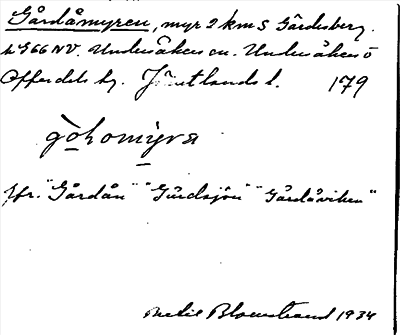 Gårdåmyren, myr 2 km S Gårdesberg.
h 966 NV. Undersåkers sn. Undersåkers o
Offerdals tg. Jämtlands l. 179
gòḥomỳra
Jfr. "Gårdån" "Gårdsjön" "Gårdåviken"
Blomstrand 1934